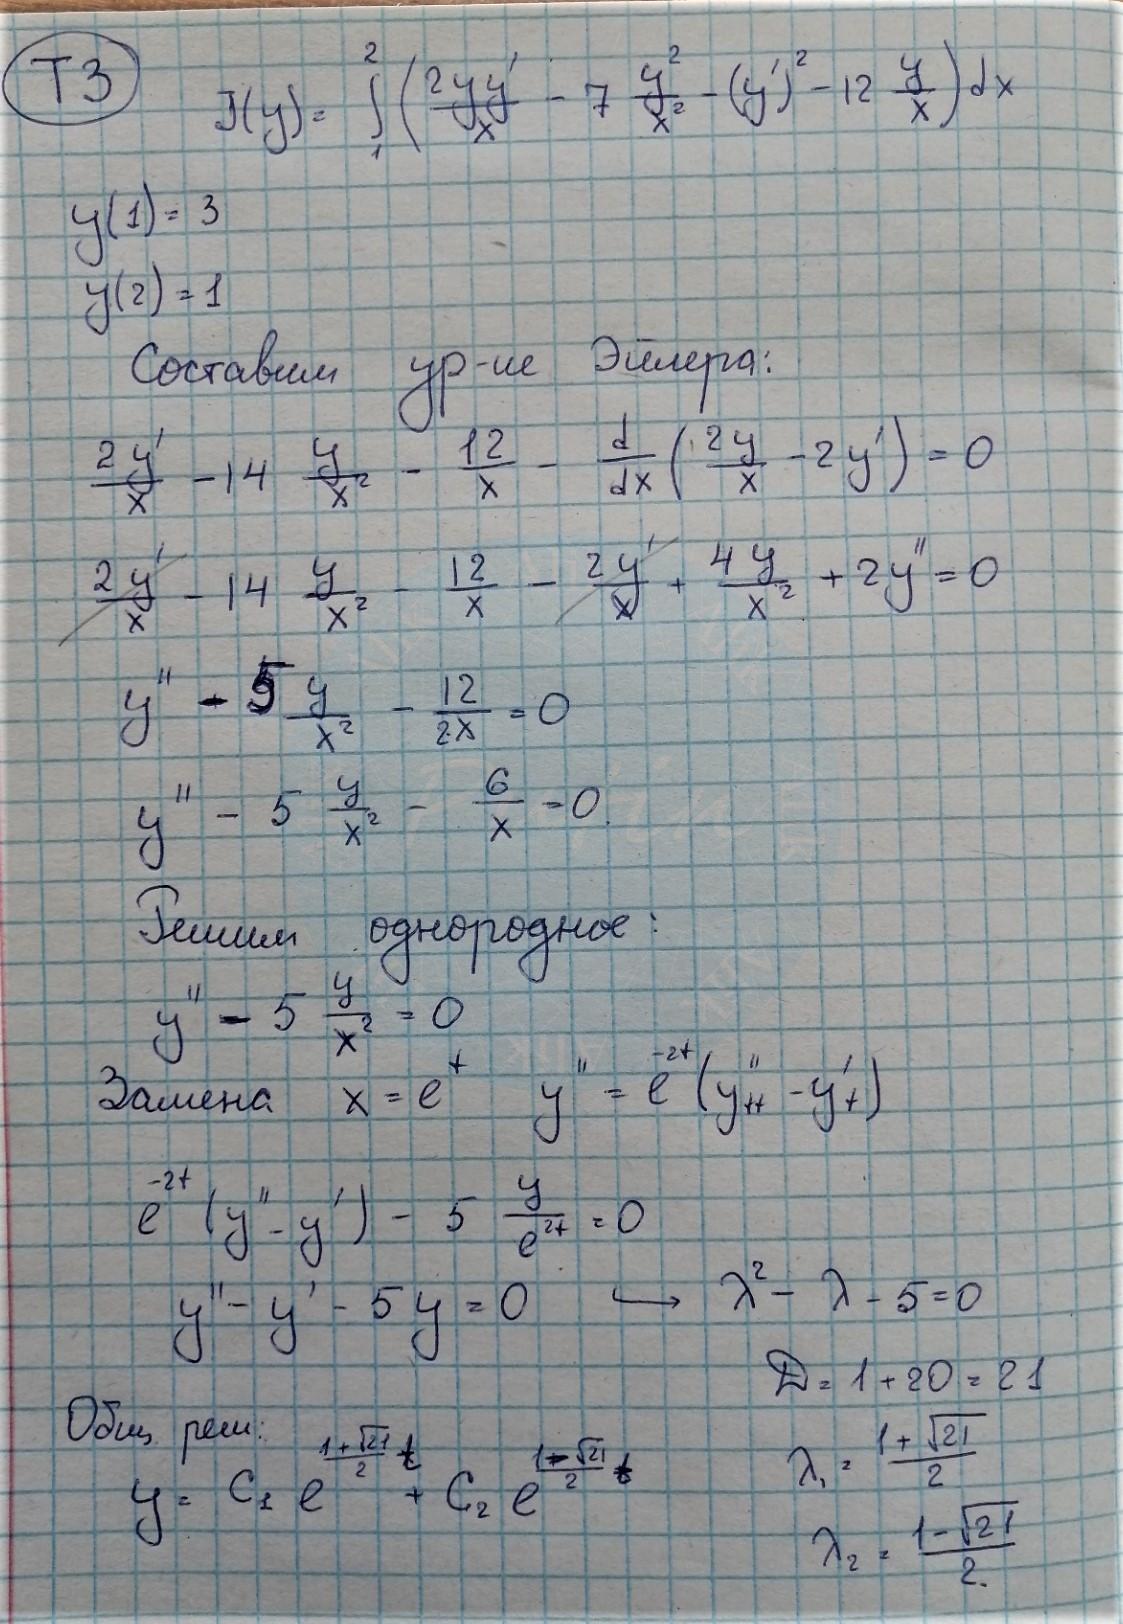 ТЗ
J(y) = ∫₁² (2yy'/x - 7 y²/x² - (y')² - 12 y/x) dx
y(1) = 3
y(2) = 1
Составим ур-ие Эйлера:
2y'/x - 14 y/x² - 12/x - d/dx (2y/x - 2y') = 0
2y'/x - 14 y/x² - 12/x - 2y'/x + 4y/x² + 2y'' = 0
y'' - 5 y/x² - 12/2x = 0
y'' - 5 y/x² - 6/x = 0.
Решим однородное:
y'' - 5 y/x² = 0
Замена x = e^t y'' = e^(-2t) (y''tt - y't)
e^(-2t) (y'' - y') - 5 y/e^(2t) = 0
y'' - y' - 5y = 0 ↪ λ² - λ - 5 = 0
D = 1 + 20 = 21
Общ. реш:
λ₁ = (1+√21)/2
y = C₁ e^((1+√21)/2 t) + C₂ e^((1-√21)/2 t)
λ₂ = (1-√21)/2.